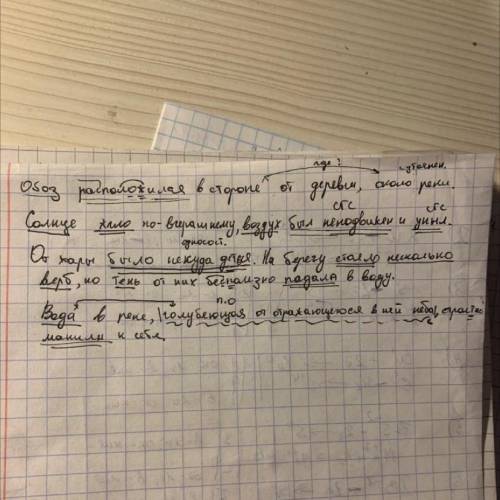 где? уточнен.
Обоз расположился в стороне от деревни, около реки.
СГС СГС
Солнце жгло по-вчерашнему, воздух был неподвижен и уныл.
односост.
От жары было некуда деться. На берегу стояло несколько
верб, но тень от них бесполезно падала в воду.
п.о
Вода в реке, голубеющая от отражающегося в ней неба, страстно
манила к себе.